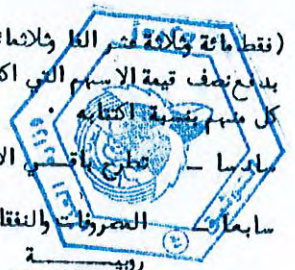 (فقط مائة وثلاثة عشر الفا وثلاثمائ
بدفع نصف قيمة الاسهم التي اك
كل منهم بنسبة اكتتابه
سادسا – تطرح باقسي الا
سابعا – المصروفات والنفقا
روبيـــــة